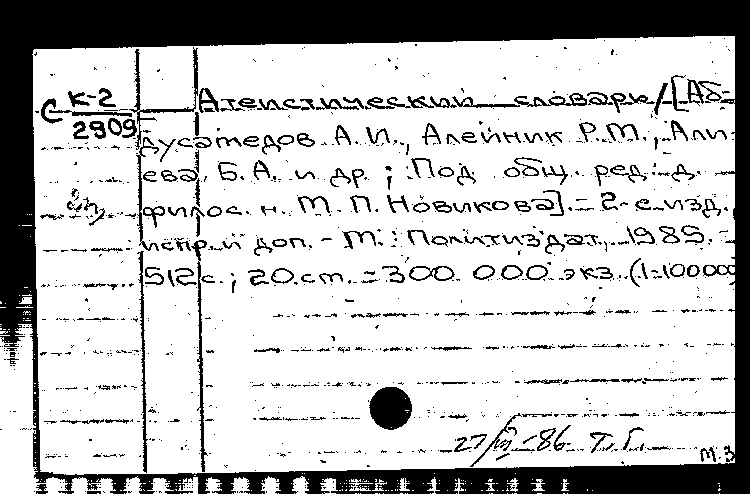 С К-2 Атеистический словарь/[Аб-
2909 дусамедов А.И., Алейник Р.М., Али-
ева Б.А. и др ; Под общ. ред. д.
филос. н. М. П. Новикова]. - 2-е изд.,
испр. и доп. - М.: Политиздат, 1985. -
512 с. ; 20 см. - 300 000 экз. (1-100000)
27/VII -86 Т. Г.
м. з